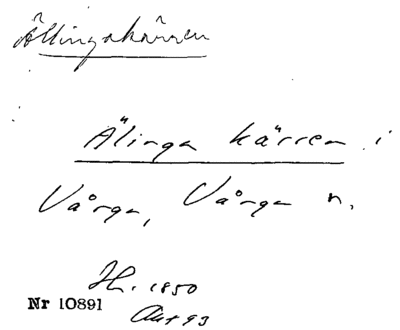 Ällingakärren
Älinga kärren i
Vårga, Vårga n.
Hr. 1850
Nr 10891
Akt 93